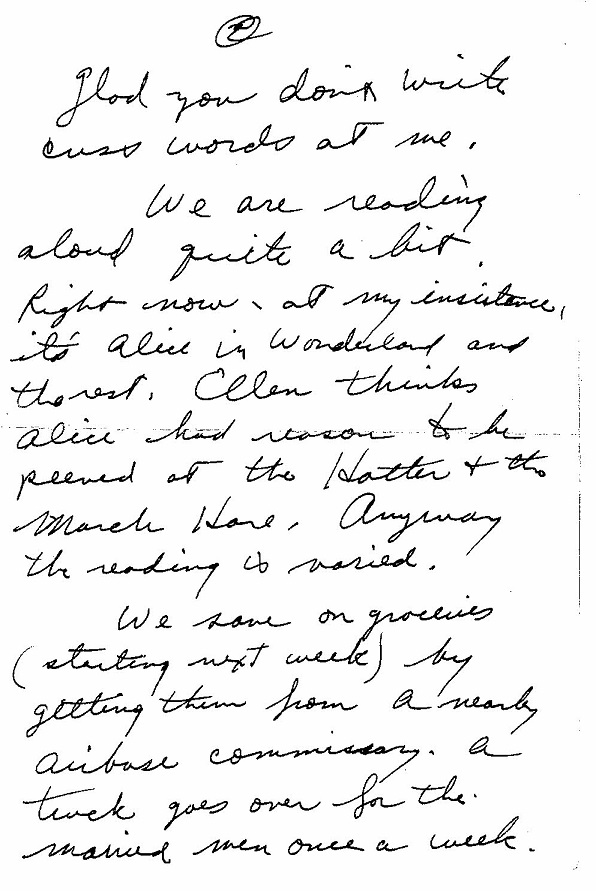 2
Glad you don't write
cuss words at me.
We are reading
aloud quite a bit.
Right now, at my insistence,
it's Alice in Wonderland and
the rest. Ellen thinks
Alice had reason to be
peeved at the Hatter + the
March Hare. Anyway
the reading is varied.
We save on groceries
(starting next week) by
getting them from a nearby
airbase commissary. A
truck goes over for the
married men once a week.